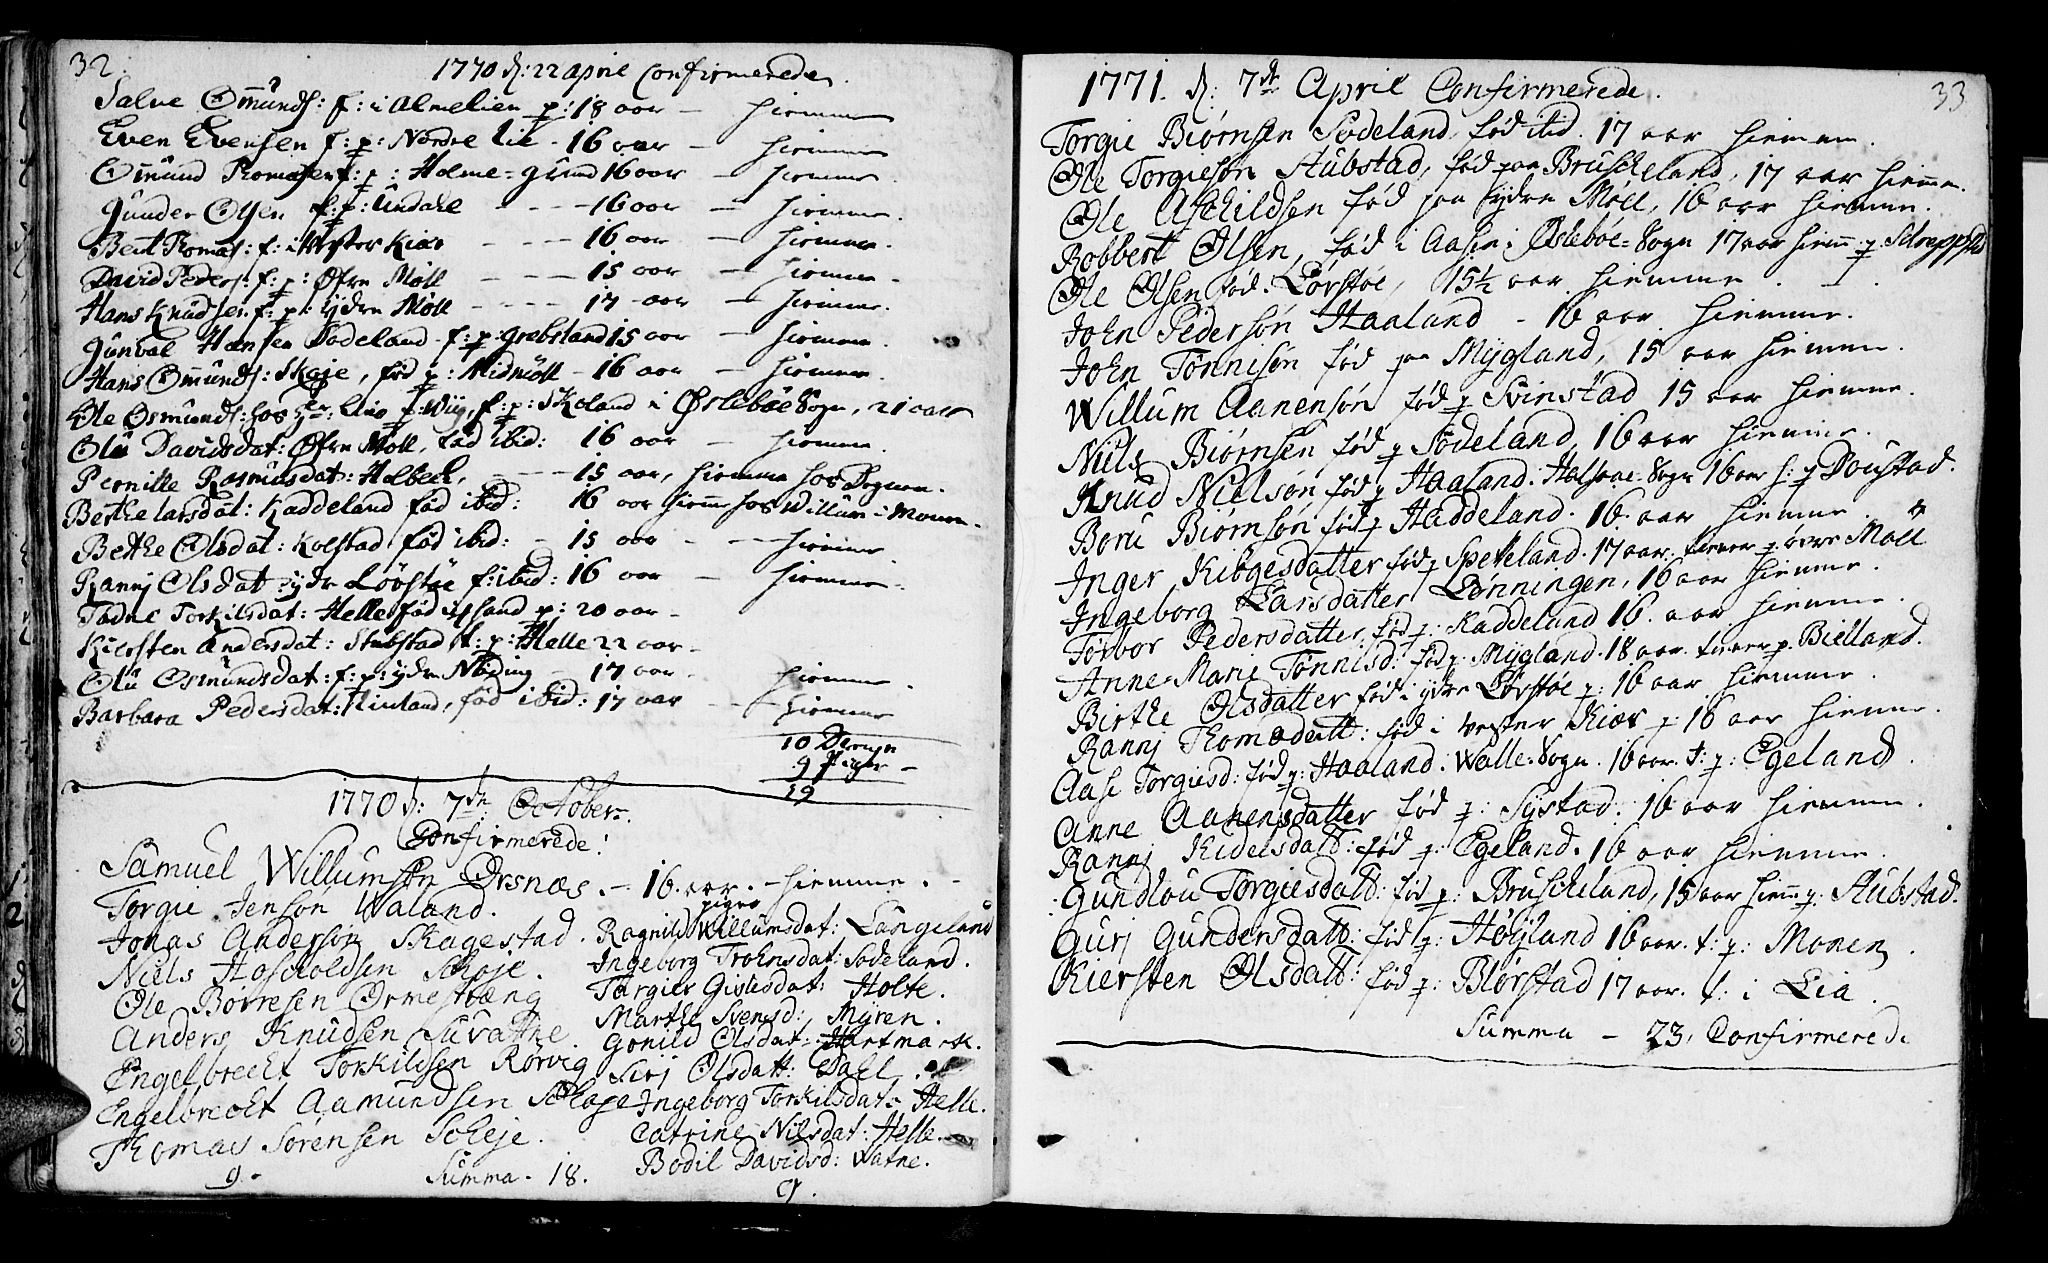 32.
1770 d: 22 april Confirmerede.
Salve Omunds: f: i Almelien p: 18 aar — hiemme
Even Evensen f: p: Nordre Lie - 16 aar — hiemme
Omund Thomasen f: p: Holme-grund 16 aar — hiemme.
Gunder Olsen f: p: Undahl - - - - 16 aar — hiemme.
Bent Thomas: f: i Vester Kiær - - - 16 aar — hiemme.
David Peders: f: p: Øfre Møll — - - 15 aar — hiemme -
Hans Knudsen f: p: ydre Møll - - - - 17 - aar — hiemme.
Gunval Hansen Sodeland f: p: Grebsland 15 aar — hiemme.
Hans Omunds: Skaje, fød p: Midmøll - 16 aar — hiemme.
Ole Osmunds: hos Hr: Wiig, f: p: Skoland i Øslebøe Sogn, 21 aar
Olu Davidsdat: Øfre Møll, fød ibid: 16 aar — hiemme
Pernille Rasmusdat: Holbech, - - - 15 aar, hiemme hos Dognen.
Berthe Larsdat: Kaddeland fød ibid: 16 aar hiem hos Willum i Monen.
Berthe Olsdat: Kolstad fød ibid: - 15 aar - - hiemme
Ranni Olsdat ydr Løvstøe f: ibid: 16 aar — hiemme.
Tadne Torkilsdat: Helle fød p: 20 aar -
Kiersten Andersdat: Stubstad f: p: Helle 22 aar -
Olu Osmundsdat: f: p: ydre Nøding - 17 aar - hiemme.
Barbara Pedersdat: Hinland, fød ibid: 17 aar - - hiemme
10 Drenge
9 Piger -
19
1770 d: 7de October.
Confirmerede:
Samuel Willumsøn Orsnæs. - 16. aar. - hiemme. -
Torgie Jensøn Waland.
Jonas Andersøn Skagestad.
Niels Hoscholdsen Scheje.
Ole Børresen Ormestræng
Anders Knudsen Suvathne.
Engelbrecht Torkildsen Rørvig
Engelbrecht Aamundsen Schaje
Thomas Sørensen Scheje.
9. -
Summa. 18.
piger
Ragnild Willumsdat: Langeland
Ingeborg Trohnsdat: Sodeland.
Targier Gislesdat: Holte.
Marthe Svensd: Myren.
Gonild Olsdat: Hartmark.
Siri Olsdatt: Dahl.
Ingeborg Torkilsdat: Helle.
Catrine Nilsdat: Helle.
Bodil Davidsd: Watne.
9.
33
1771. d: 7de April Confirmerede.
Torgie Biørnsen Sodeland, fød ibid. 17 aar hiemme.
Ole Torgiesøn Stubstad, fød paa Bruskeland, 17 aar hiemme.
Ole Aschildsen fød paa ydre Møll, 16 aar hiemme.
Robbert Olsen, fød i Aasen i Øslebøe-Sogn 17 aar hiem p.
Ole Olsen fød. Lørstøe, 15½ aar hiemme.
John Pedersøn Haaland - 16 aar hiemme.
John Tønnisøn fød paa Mygland, 15 aar hiemme.
Willum Aanensøn fød p Svinstad 15 aar hiemme.
Niels Biørnsen fød p Sodeland, 16 aar hiemme.
Knud Nielsøn fød p Haaland. Halsaae-Sogn 16 aar f: p Doustad.
Boru Biørnsøn fød p Haddeland. 16 aar hiemme.
Inger Kibgesdatter fød p Speteland. 17 aar. tiener p. øvre Møll
Ingeborg Larsdatter Lønningen, 16 aar hiemme.
Torbor Pedersdatter fød p: Kaddeland 16. aar hiemme.
Anne-Marie Tønnisd: fød p: Mygland. 18 aar. tiener p. Bielland.
Birthe Olsdatter fød i ydre Lørstøe p: 16 aar hiemme.
Ranni Thomædatt: fød i vester Kiær p: 16 aar hiemme.
Aase Torgiesd: fød p: Haaland. Walle-Sogn. 16 aar. t: p: Egeland.
Anne Aanensdatter fød p: Systad: 16 aar hiemme.
Ranni Kidelsdatt: fød p: Egeland. 16 aar hiemme.
Gundlou Torgiesdatt: fød p: Bruscheland, 15 aar hiem p: Stubstad.
Guri Gundersdatt: fød p: Høyland 16 aar. t: p: Monen.
Kiersten Olsdatt: fød p: Blørstad 17 aar. t: i Lia.
Summa - 23, Confirmerede